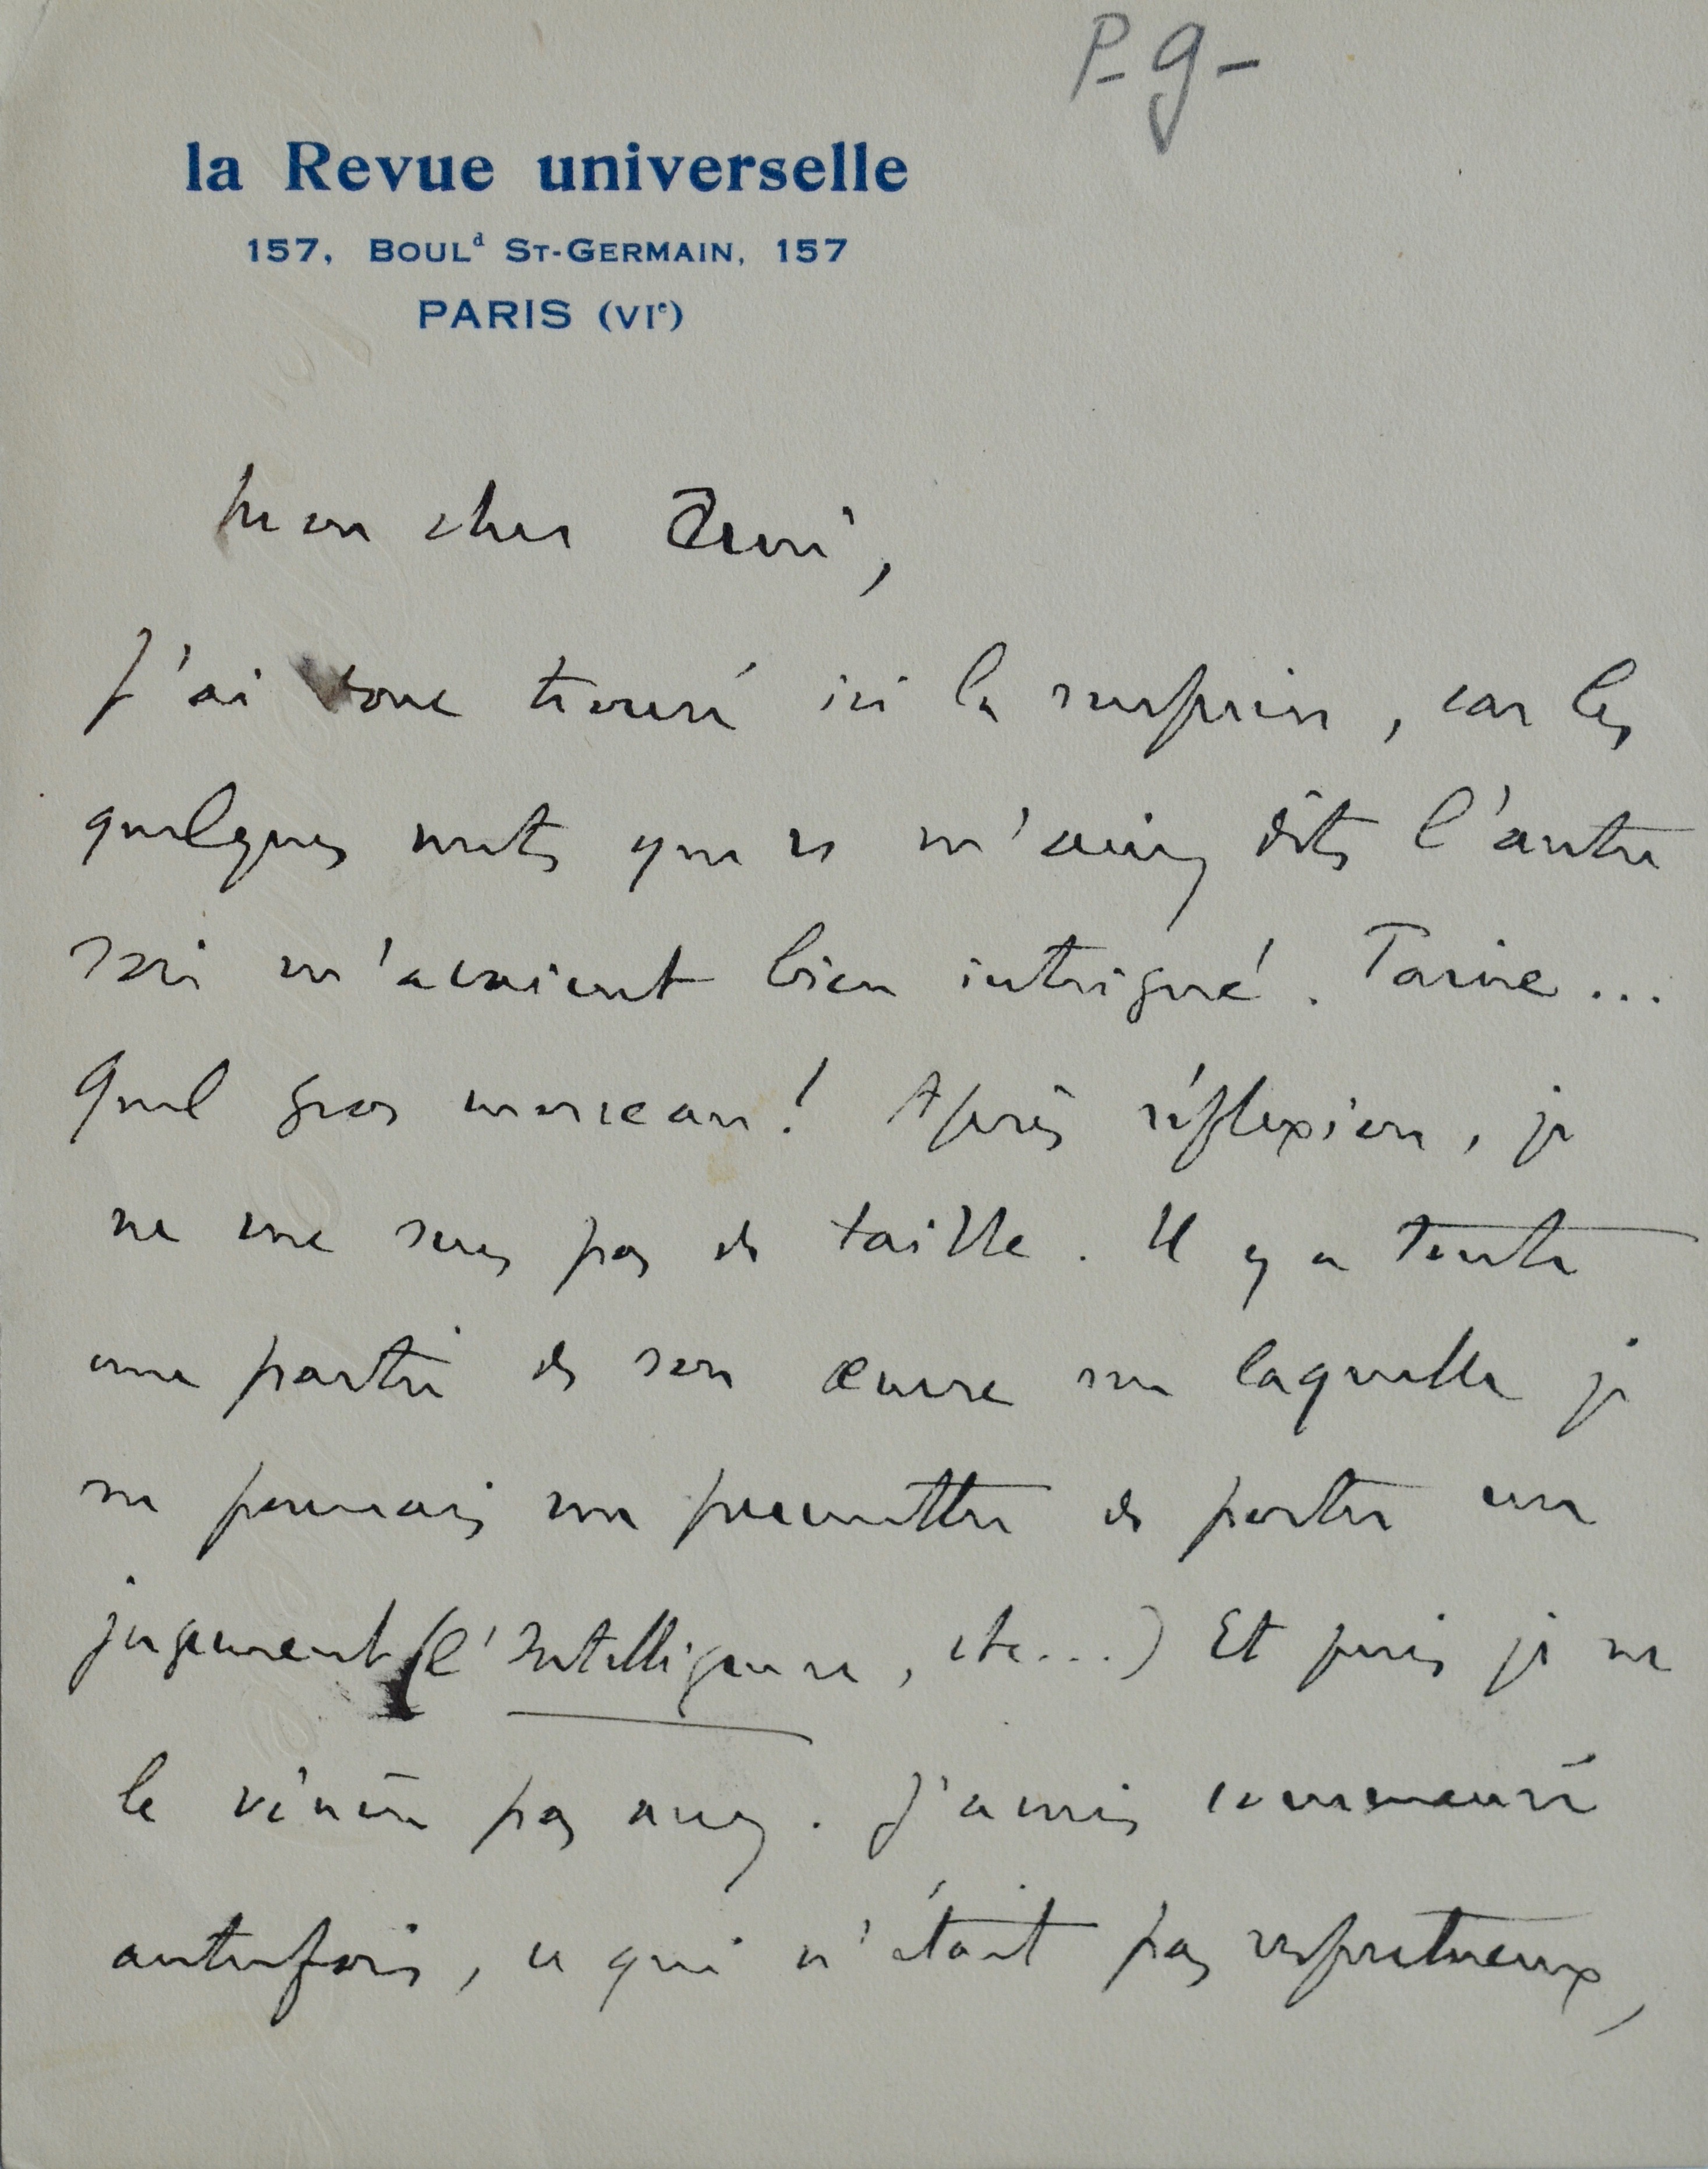 P-g-
la Revue universelle
157, BOULd ST-GERMAIN, 157
PARIS (VIe)
Mon cher Ami,
J'ai donc trouvé ici la surprise, car les
quelques mots que vs m'aviez dits l'autre
soir m'avaient bien intrigué. Taine...
Quel gros morceau! Après réflexion, je
ne me sens pas de taille. Il y a toute
une partie de son œuvre sur laquelle je
ne pourrais me permettre de porter un
jugement (l'Intelligence, etc...) Et puis je ne
le vénère pas assez. J'avais commencé
autrefois, ce qui n'était pas respectueux,